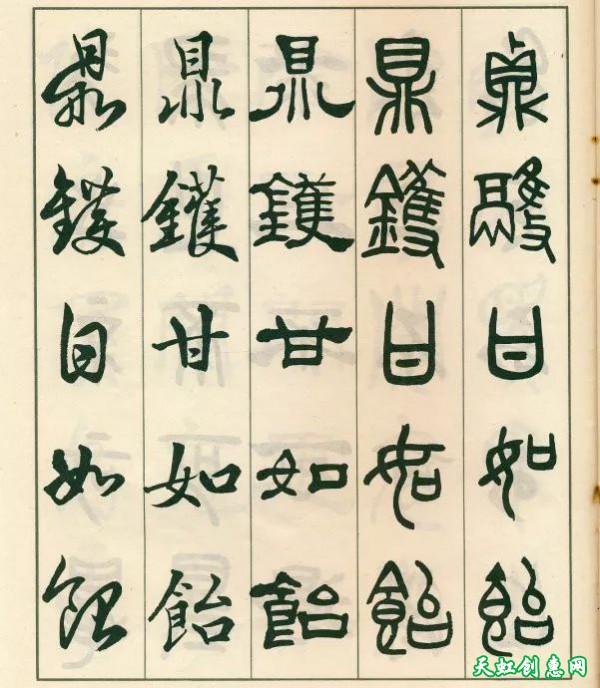 鼎鑊甘如飴
鼎鑊甘如飴
鼎鑊甘如飴
鼎鑊甘如飴
鼎鑊甘如飴
天虹创惠网